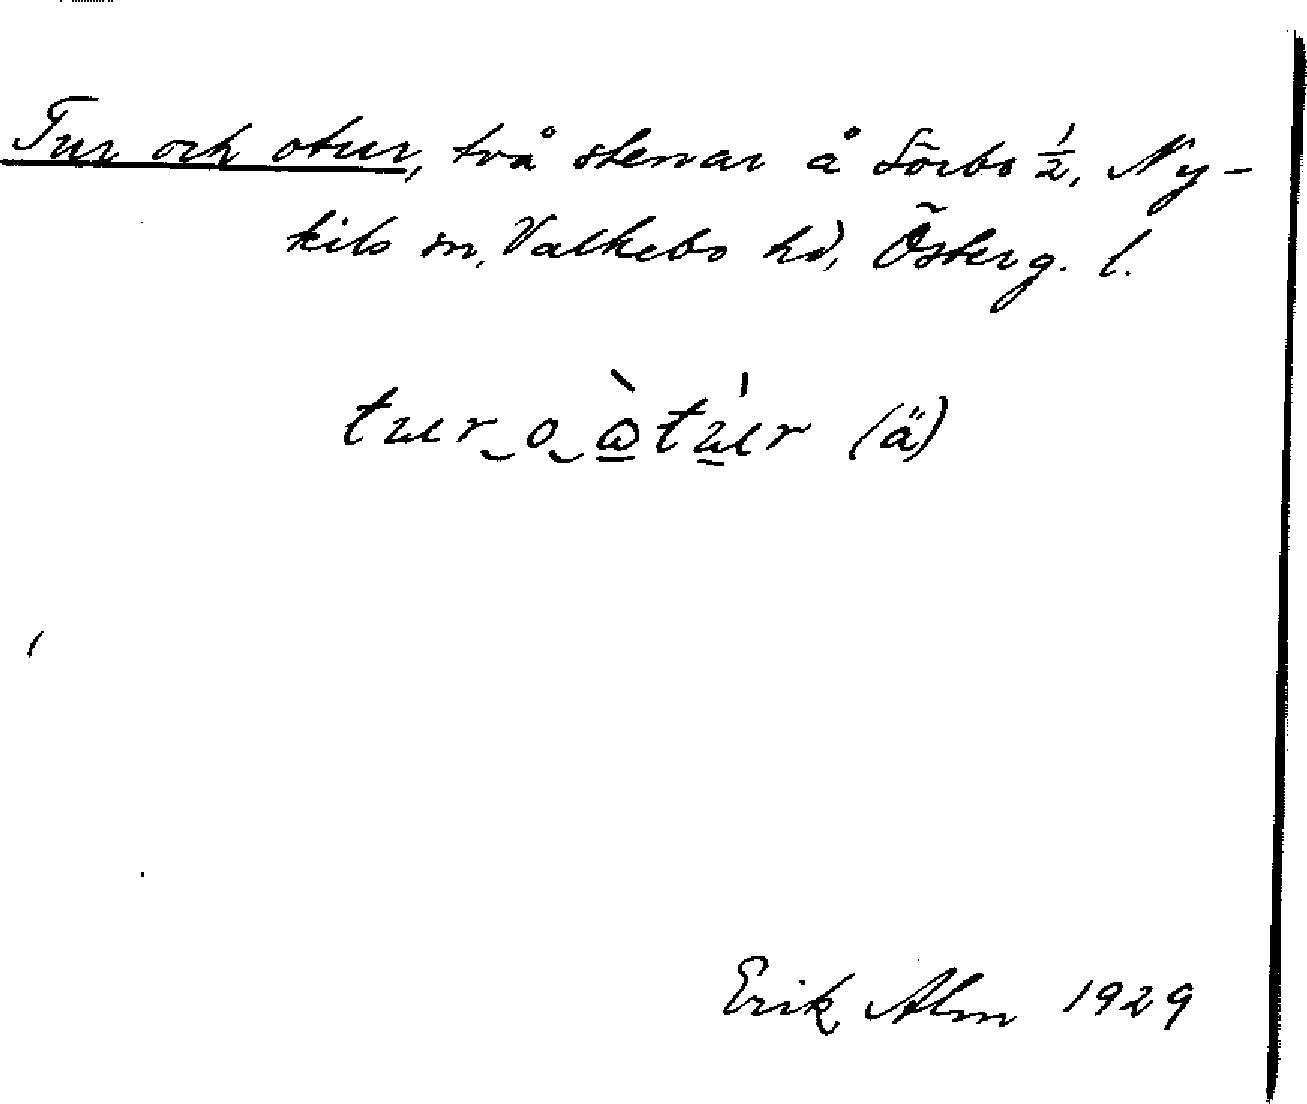 Tur och otur, två stenar å Sörbo 1/2, Ny-
kils sn, Valkebo hd, Österg. l.
tur o òtúr (ä)
Erik Alm 1929